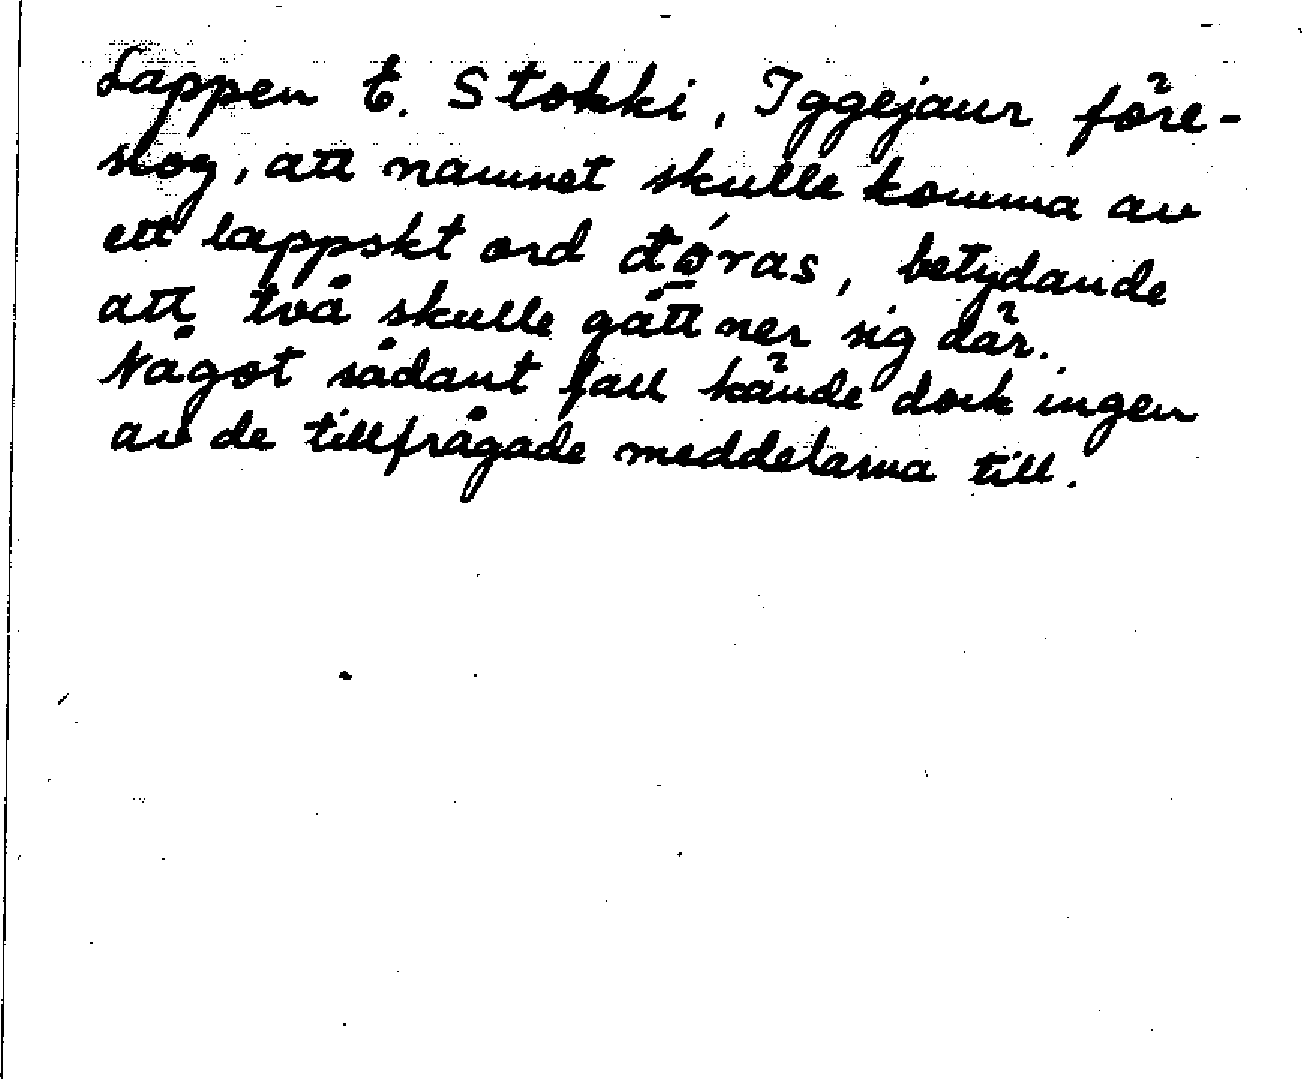 Lappen E. Stokki, Iggejaur före-
slog, att namnet skulle komma av
ett lappskt ord
betydande
att två skulle gått ner sig där.
Något sådant fall kände dock ingen
av de tillfrågade meddelarna till.